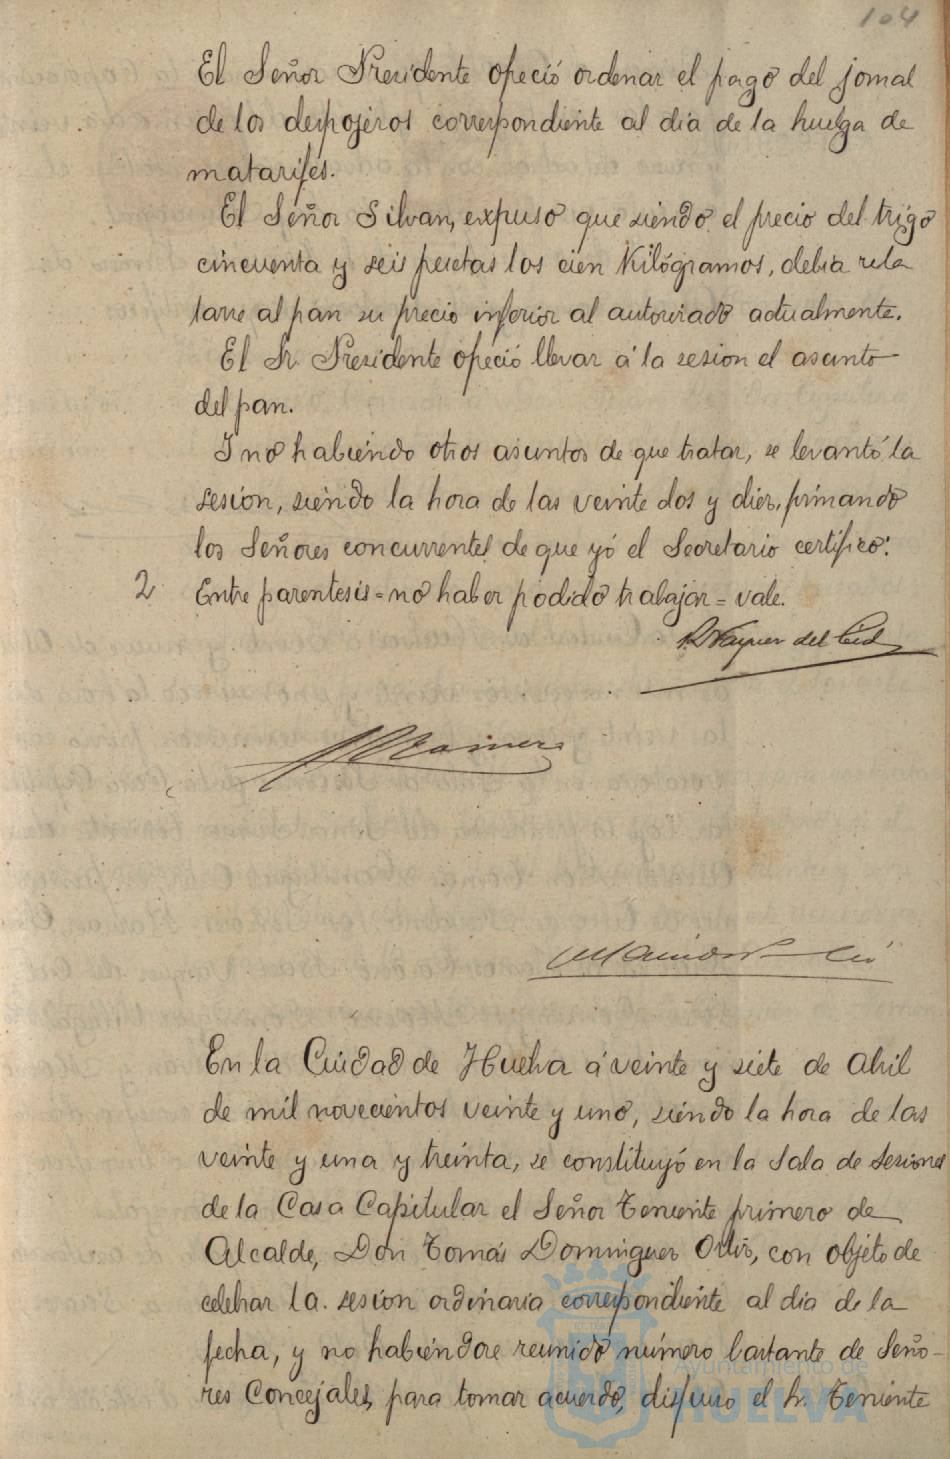 104
El Señor Presidente ofreció ordenar el pago del jornal
de los despojeros correspondiente al dia de la huelga de
matarifes.
El Señor Silvan, expuso que siendo el precio del trigo
cincuenta y seis pesetas los cien Kilógramos, debia rela
tarse al pan su precio inferior al autorizado actualmente.
El Sr. Presidente ofreció llevar á la sesion el asunto
del pan.
Y no habiendo otros asuntos de que tratar, se levantó la
sesion, siendo la hora de las veinte dos y diez, firmando
los Señores concurrentes de que yó el Secretario certifico:
2 Entre parentesis=no haber podido trabajar=vale.
Vazquez del Cid
En la Ciudad de Huelva á veinte y siete de Abril
de mil novecientos veinte y uno, siendo la hora de las
veinte y una y treinta, se constituyó en la Sala de Sesiones
de la Casa Capitular el Señor Teniente primero de
Alcalde, Don Tomás Dominguez Ortiz, con objeto de
celebrar la sesion ordinaria correspondiente al dia de la
fecha, y no habiendose reunido número bastante de Seño-
res Concejales, para tomar acuerdo, dispuso el Sr. Teniente
Ayuntamiento de
HUELVA